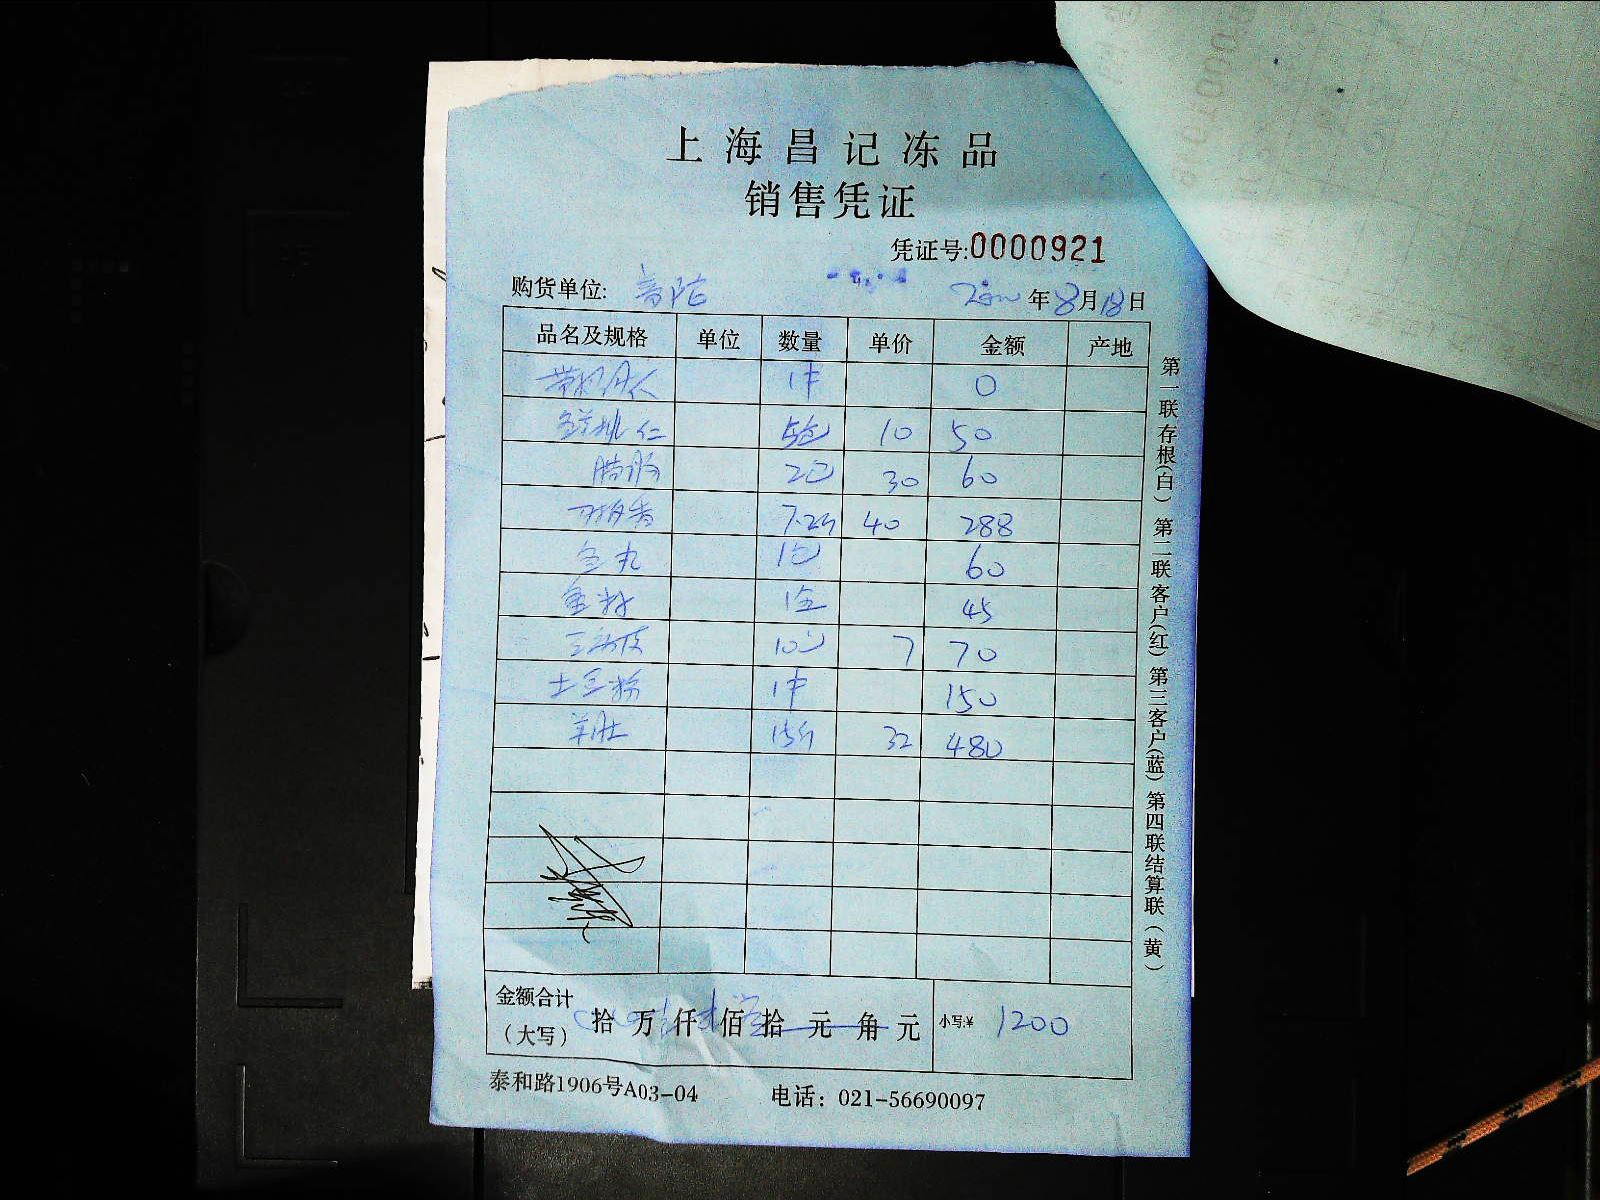 上海昌记冻品
销售凭证
凭证号:0000921
购货单位: 年8月18日
品名及规格 单位 数量 单价 金额 产地
1件 0
仁 5包 10 50
2包 30 60
7.2斤 40 288
丸 1包 60
1盒 45
10包 7 70
土豆粉 1件 150
羊肚 15斤 32 480
金额合计
(大写) 拾 万 仟 佰 拾 元 角 元 小写:¥ 1200
泰和路1906号A03-04 电话：021-56690097
第一联存根(白) 第二联客户(红) 第三客户(蓝) 第四联结算联(黄)